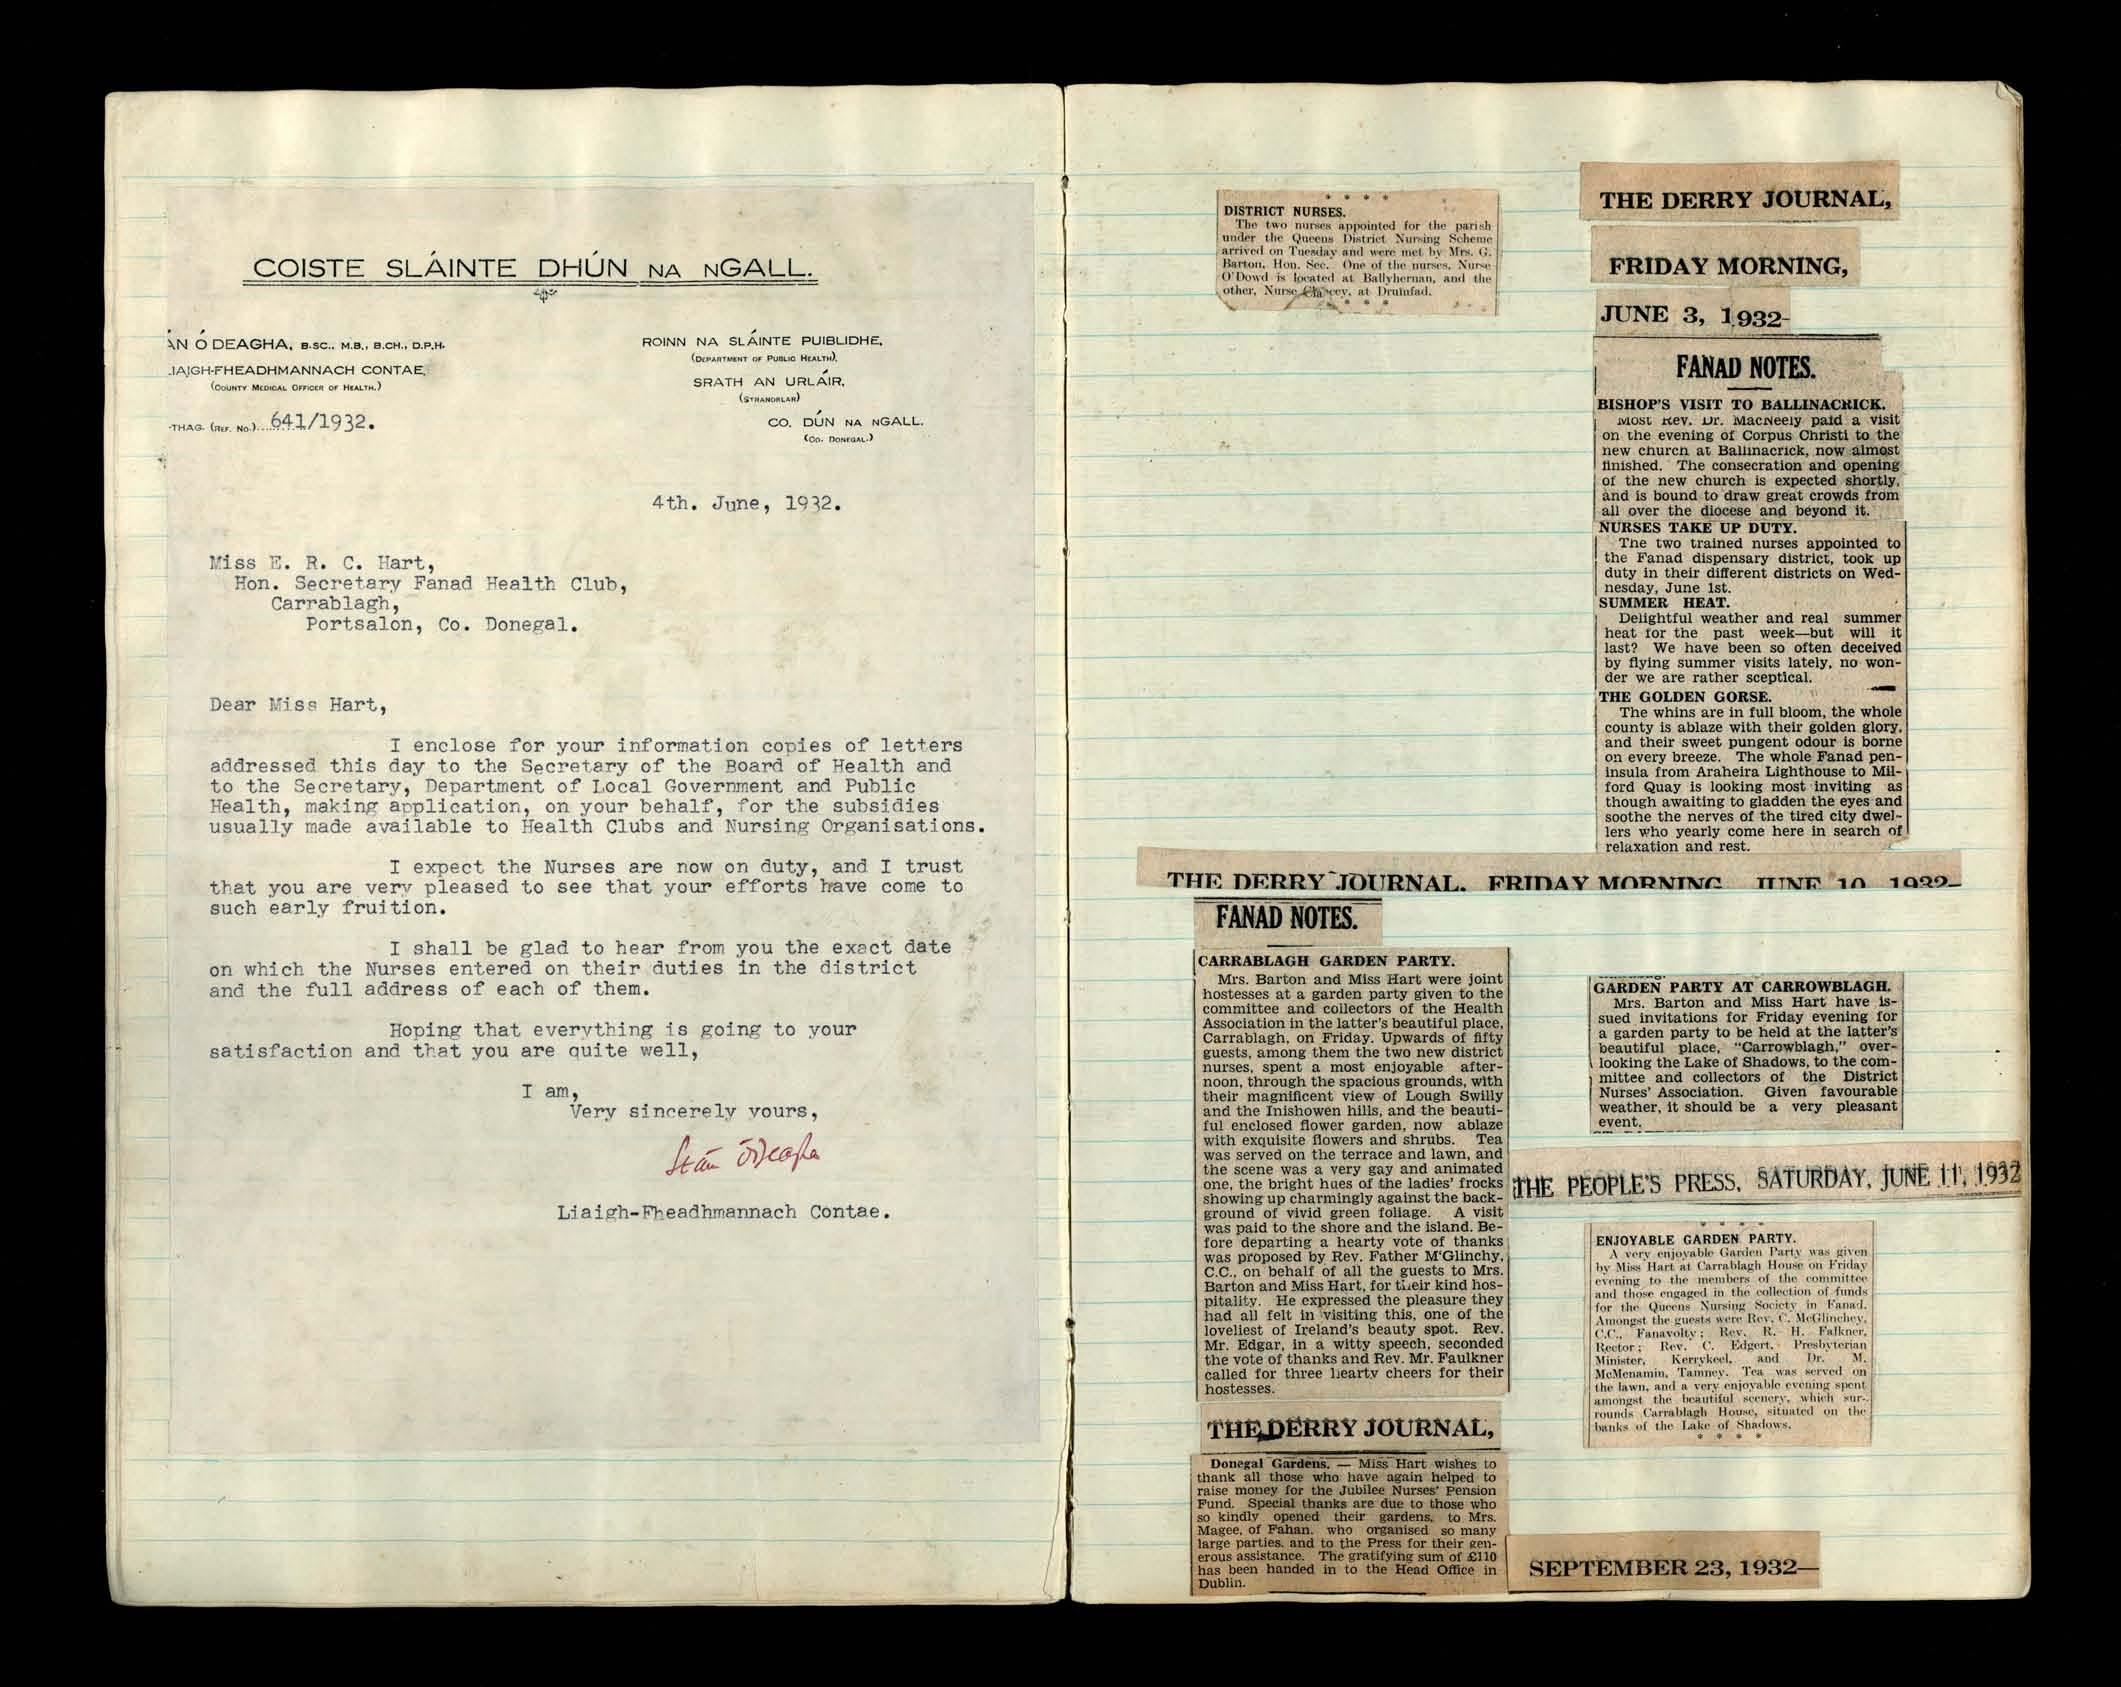 COISTE SLÁINTE DHÚN NA NGALL.
ÁN Ó DEAGHA, B.SC., M.B., B.CH., D.P.H.
LIAIGH-FHEADHMANNACH CONTAE,
(COUNTY MEDICAL OFFICER OF HEALTH.)
-THAG. (REF. No.) 641/1932.
ROINN NA SLÁINTE PUIBLIDHE,
(DEPARTMENT OF PUBLIC HEALTH),
SRATH AN URLÁIR,
(STRANORLAR)
CO. DÚN NA NGALL.
(CO. DONEGAL.)
4th. June, 1932.
Miss E. R. C. Hart,
Hon. Secretary Fanad Health Club,
Carrablagh,
Portsalon, Co. Donegal.
Dear Miss Hart,
I enclose for your information copies of letters
addressed this day to the Secretary of the Board of Health and
to the Secretary, Department of Local Government and Public
Health, making application, on your behalf, for the subsidies
usually made available to Health Clubs and Nursing Organisations.
I expect the Nurses are now on duty, and I trust
that you are very pleased to see that your efforts have come to
such early fruition.
I shall be glad to hear from you the exact date
on which the Nurses entered on their duties in the district
and the full address of each of them.
Hoping that everything is going to your
satisfaction and that you are quite well,
I am,
Very sincerely yours,
Seán ÓDeagha
Liaigh-Fheadhmannach Contae.
* * * *
DISTRICT NURSES.
The two nurses appointed for the parish
under the Queens District Nursing Scheme
arrived on Tuesday and were met by Mrs. G.
Barton, Hon. Sec. One of the nurses, Nurse
O'Dowd is located at Ballyhernan, and the
other, Nurse at Drumfad.
* * *
THE DERRY JOURNAL,
FRIDAY MORNING,
JUNE 3, 1932-
FANAD NOTES.
BISHOP'S VISIT TO BALLINACRICK.
Most Rev. Dr. MacNeely paid a visit
on the evening of Corpus Christi to the
new church at Ballinacrick, now almost
finished. The consecration and opening
of the new church is expected shortly,
and is bound to draw great crowds from
all over the diocese and beyond it.
NURSES TAKE UP DUTY.
The two trained nurses appointed to
the Fanad dispensary district, took up
duty in their different districts on Wed-
nesday, June 1st.
SUMMER HEAT.
Delightful weather and real summer
heat for the past week—but will it
last? We have been so often deceived
by flying summer visits lately, no won-
der we are rather sceptical.
THE GOLDEN GORSE.
The whins are in full bloom, the whole
county is ablaze with their golden glory,
and their sweet pungent odour is borne
on every breeze. The whole Fanad pen-
insula from Araheira Lighthouse to Mil-
ford Quay is looking most inviting as
though awaiting to gladden the eyes and
soothe the nerves of the tired city dwel-
lers who yearly come here in search of
relaxation and rest.
THE DERRY JOURNAL, FRIDAY MORNING, JUNE 10, 1932-
FANAD NOTES.
CARRABLAGH GARDEN PARTY.
Mrs. Barton and Miss Hart were joint
hostesses at a garden party given to the
committee and collectors of the Health
Association in the latter's beautiful place,
Carrablagh, on Friday. Upwards of fifty
guests, among them the two new district
nurses, spent a most enjoyable after-
noon, through the spacious grounds, with
their magnificent view of Lough Swilly
and the Inishowen hills, and the beauti-
ful enclosed flower garden, now ablaze
with exquisite flowers and shrubs. Tea
was served on the terrace and lawn, and
the scene was a very gay and animated
one, the bright hues of the ladies' frocks
showing up charmingly against the back-
ground of vivid green foliage. A visit
was paid to the shore and the island. Be-
fore departing a hearty vote of thanks
was proposed by Rev. Father M'Glinchy,
C.C., on behalf of all the guests to Mrs.
Barton and Miss Hart, for their kind hos-
pitality. He expressed the pleasure they
had all felt in visiting this, one of the
loveliest of Ireland's beauty spot. Rev.
Mr. Edgar, in a witty speech, seconded
the vote of thanks and Rev. Mr. Faulkner
called for three hearty cheers for their
hostesses.
GARDEN PARTY AT CARROWBLAGH.
Mrs. Barton and Miss Hart have is-
sued invitations for Friday evening for
a garden party to be held at the latter's
beautiful place, "Carrowblagh," over-
looking the Lake of Shadows, to the com-
mittee and collectors of the District
Nurses' Association. Given favourable
weather, it should be a very pleasant
event.
THE PEOPLE'S PRESS, SATURDAY, JUNE 11, 1932
* * * *
ENJOYABLE GARDEN PARTY.
A very enjoyable Garden Party was given
by Miss Hart at Carrablagh House on Friday
evening to the members of the committee
and those engaged in the collection of funds
for the Queens Nursing Society in Fanad.
Amongst the guests were Rev. C. McGlinchey,
C.C., Fanavolty; Rev. R. H. Falkner,
Rector; Rev. C. Edgert, Presbyterian
Minister, Kerrykeel, and Dr. M.
McMenamin, Tamney. Tea was served on
the lawn, and a very enjoyable evening spent
amongst the beautiful scenery, which sur-
rounds Carrablagh House, situated on the
banks of the Lake of Shadows.
* * * *
THE DERRY JOURNAL,
Donegal Gardens. — Miss Hart wishes to
thank all those who have again helped to
raise money for the Jubilee Nurses' Pension
Fund. Special thanks are due to those who
so kindly opened their gardens, to Mrs.
Magee, of Fahan, who organised so many
large parties, and to the Press for their gen-
erous assistance. The gratifying sum of £110
has been handed in to the Head Office in
Dublin.
SEPTEMBER 23, 1932—